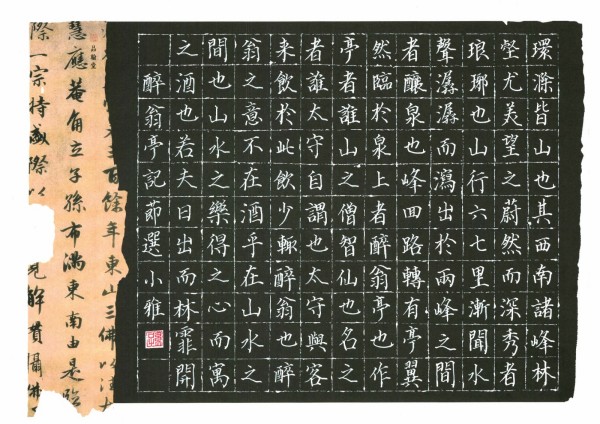 環滁皆山也其西南諸峰林
壑尤美望之蔚然而深秀者
琅琊也山行六七里漸聞水
聲潺潺而瀉出於兩峰之間
者釀泉也峰回路轉有亭翼
然臨於泉上者醉翁亭也作
亭者誰山之僧智仙也名之
者誰太守自謂也太守與客
来飲於此飲少輒醉翁也醉
翁之意不在酒乎在山水之
間也山水之樂得之心而寓
之酒也若夫日出而林霏開
醉翁亭記節選小雅
三百餘年東山三佛以
慧應菴角立子孫布滿東南由是臨
際一宗特盛際以見解貫攝佛